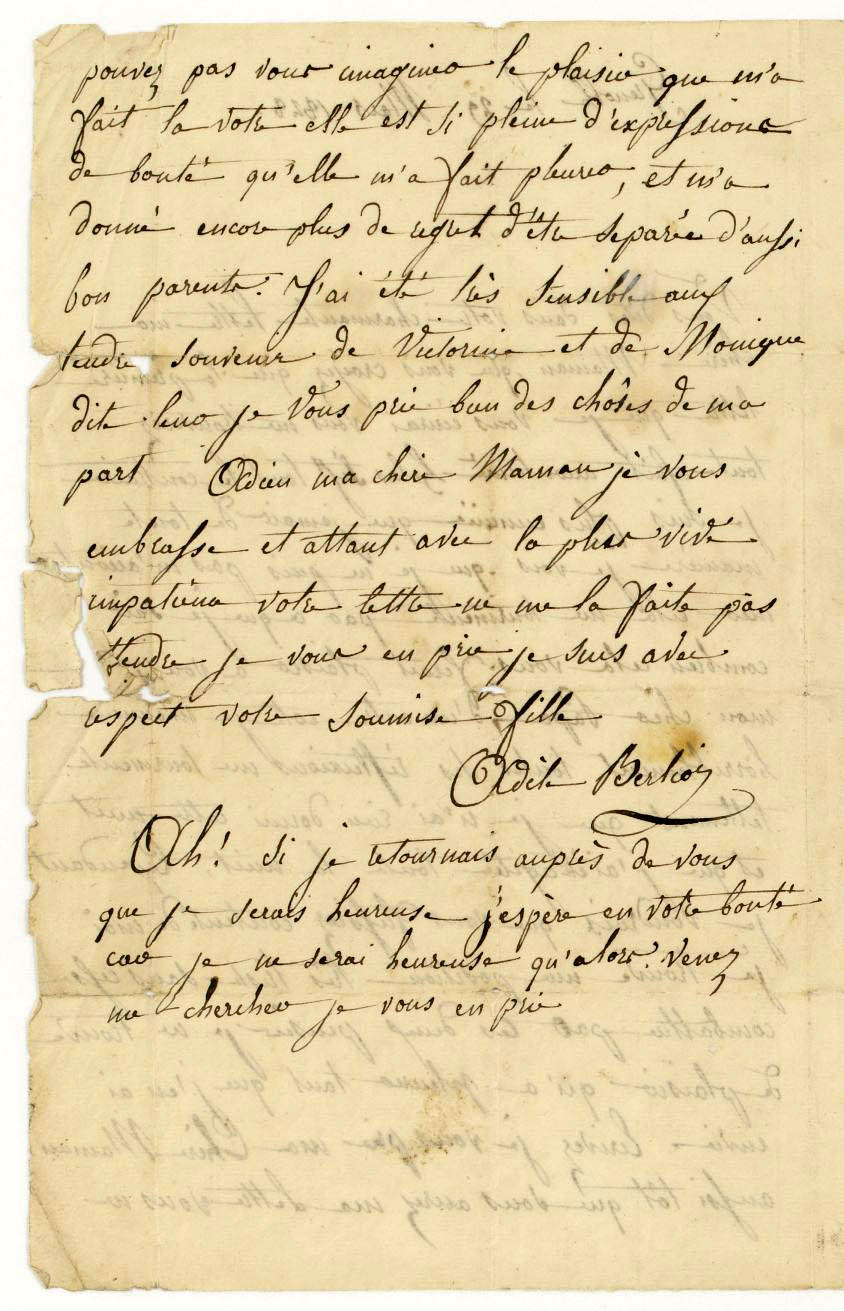 pouvez pas vous imaginer le plaisir que m'a
fait la votre elle est si pleine d'expressions
de bonté qu'elle m'a fait pleurer, et m'a
donné encore plus de regret d'être separée d'aussi
bon parents. J'ai été très sensible aux
tendre souvenir de Victorine et de Monique
dite leur je vous prie bien des chôses de ma
part Adieu ma chère Maman je vous
embrasse et attant avec la plus vive
impatience votre lettre ne me la faite pas
ttendre je vous en prie je suis avec
respect votre soumise fille
Adèle Berlioz
Ah! si je retournais auprès de vous
que je serais heureuse j'espère en votre bonté
car je ne serai heureuse qu'alors. venez
me chercher je vous en prie